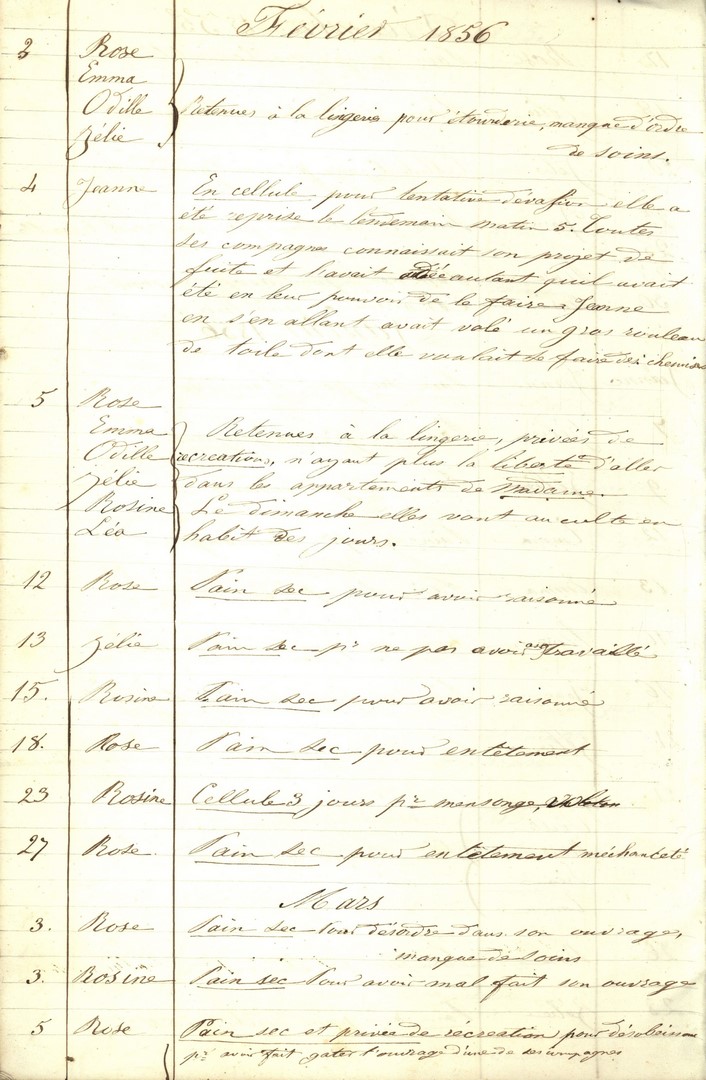 Février 1856
2 Rose
Emma
Odille
Zélie
Retenues à la lingerie pour étourderie, manque d'ordre
de soins.
4 Jeanne En cellule pour tentative d'évasion elle a
été reprise le lendemain matin 5. Toutes
ses compagnes connaissait son projet de
fuite et l'avait autant qu'il avait
été en leur pouvoir de le faire. Jeanne
en s'en allant avait volé un gros rouleau
de toile dont elle voulait se faire des chemises
5 Rose
Emma
Odille
Zélie
Rosine
Léa
Retenues à la lingerie, privées de
récréations, n'ayant plus la liberté d'aller
dans les appartements de Madame.
Le dimanche elles vont au culte en
habit des jours.
12 Rose Pain sec pour avoir raisonné
13 Zélie Pain sec pr ne pas avoir travaillé
15. Rosine Pain sec pour avoir raisonné
18. Rose Pain sec pour entêtement
23 Rosine Cellule 3 jours pr mensonge,
27 Rose Pain sec pour entêtement méchanceté
Mars
3. Rose Pain sec pour désordre dans son ouvrage,
manque de soins
3. Rosine Pain sec pour avoir mal fait son ouvrage
5 Rose Pain sec et privée de récréation pour désobéissance
pr avoir fait gater l'ouvrage d'une de ses compagnes